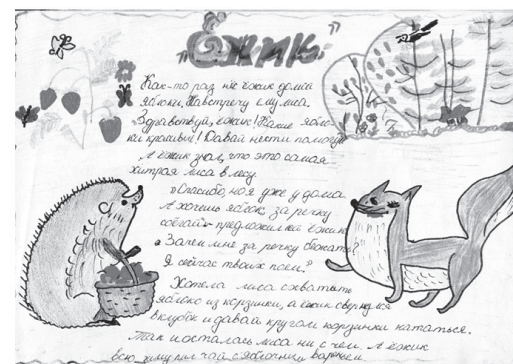 "Ёжик"
Как-то раз нёс ёжик домой
яблоки. Навстречу ему лиса.
"Здравствуй, ёжик! Какие ябло-
ки красивые! Давай нести помогу"
А ёжик знал, что это самая
хитрая лиса в лесу.
"Спасибо, но я уже у дома.
А хочешь яблок, за речку
сбегай"- предложил ей ёжик.
"Зачем мне за речку бежать?
Я сейчас твоих поем."
Хотела лиса схватить
яблоко из корзинки, а ёжик свернулся
в клубок и давай кругом корзинки кататься.
Так и осталась лиса ни с чем. А ёжик
всю зиму пил чай с яблочным вареньем.